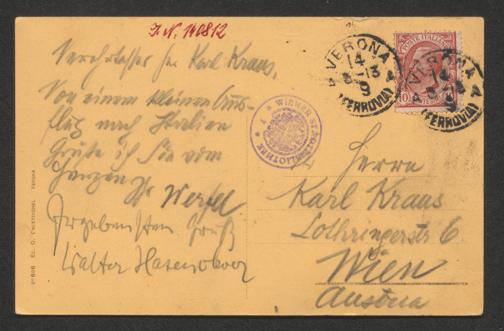 I. N. 140812
Verehrtester Herr Karl Kraus,
Von einem kleinen Aus-
flug nach Italien
Grüße ich Sie vom
Herzen Ihr Werfel
Ergebensten Gruß
Walter Hasenclever
WIENER STADTBIBLIOTHEK
VERONA
14
8-13
9
(FERROVIA)
POSTE ITALIANE
10
VERONA
14
9
(FERROVIA)
Herrn
Karl Kraus
Lothringerstr 6
Wien
Austria